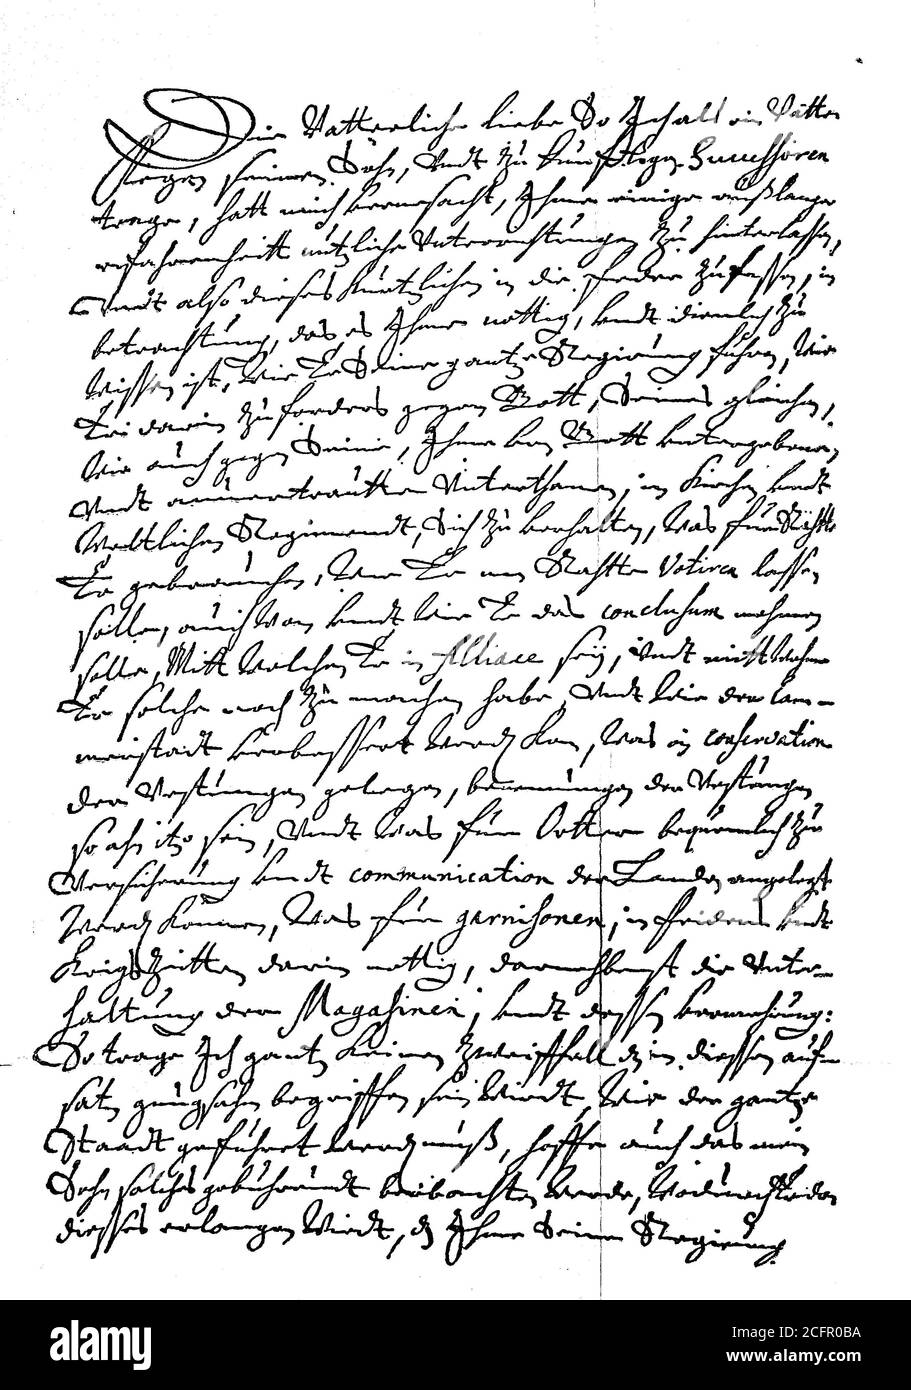 Die Vatterliche liebe So Ich als ein Vatter
gegen seinen Sohn, Undt zu Künftigen Successoren
trage, hatt mich verursacht, Ihme einige auß langer
erfahrenheitt nützliche Unterrichtungen zu hinterlassen,
Undt also dieses Kürtzlichen in die feder zu fassen, in
betrachtung, das es Ihme nöttig, undt dienlich zu
wissen ist, wie Er Seine gantze Regierung führen, wie
Er darin zuforders gegen Gott, Seines gleichen,
wie auch gegen Seine, Ihme von Gott untergebene,
Undt anvertrautte Unterthanen, in Kirchen undt
Weltlichen Regimendt, Sich zu verhalten, was für Rähtte
Er gebrauchen, wie Er im Rahtte Votiren lassen
solle, auch wan undt wie Er das conclusum nehmen
solle, Mitt welchen Er in Alliace seÿ, undt mitt wehm
Er solche noch zu machen habe, Undt wie der Cam-
merstadt verbessert werden Kan, was in conservation
der Vestungen gelegen, benennungen der Vestungen
so ahn itzo sein, Undt was für Ortter bequemlich zu
Versicherung undt communication der Landen angelegt
werden Können, was für garnisonen, in fridens undt
Krigs Zeitten darin nottig, darnebenst die Unter-
haltung der Magasinen, undt dessen vermehrung:
So trage Ich gantz Keinen zweiffell das in diessen auf-
satz gnugsahm begriffen sein wirdt, Wie der gantze
Staadt geführet werden muß, hoffe auch das mein
Sohn solches gebuhrendt beobachten werde,
diesses erlangen wirdt, das Ihme Seine Regirung
alamy
Image ID: 2CFR0BA
www.alamy.com